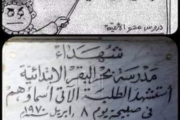 دروس محو الأمية
شهداء
مدرسة بحر البقر الابتدائية
استشهد الطلبة الآتى أسماؤهم
فى صبيحة يوم ٨ ابريل ١٩٧٠